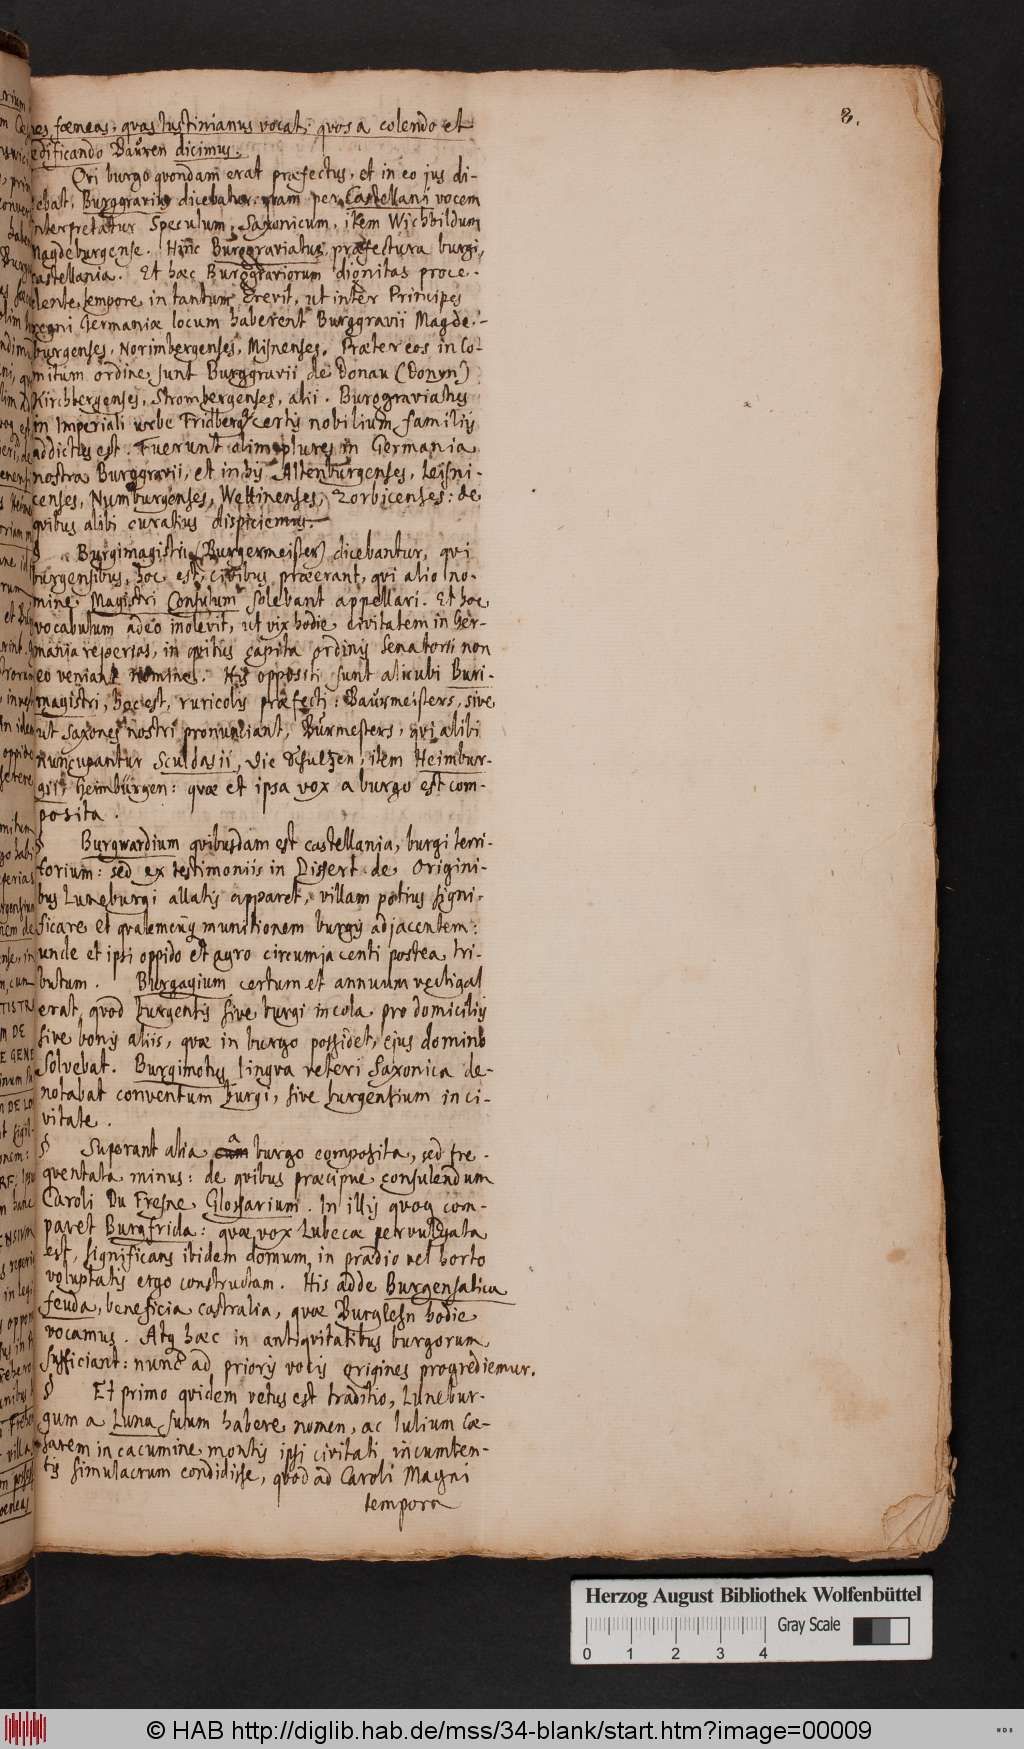 8.
res fœneas, quas Iustinianus vocat; quos a colendo et
ædificando Bauren dicimus.
Qvi burgo quondam erat præfectus, et in eo jus di-
cebat, Burggravius dicebatur: quam per Castellani vocem
interpretatur Speculum, Saxonicum, item Wichbildum
Magdeburgense. Hinc Burggraviatus, præfectura burgi,
castellania. Et hæc Burggraviorum dignitas proce-
dente tempore in tantum crevit, ut inter Principes
regni Germaniæ locum haberent Burggravii Magde-
burgenses, Norimbergenses, Misnenses. Præter eos in Co-
mitum ordine sunt Burggravii de Donau (Donyn)
Kirchbergenses, Strombergenses, alii. Burggraviatus
in Imperiali urbe Fridberg certis nobilium familiis
addictus est. Fuerunt olim plures in Germania
nostra Burggravii, et in his Altenburgenses, Leisni-
censes, Numburgenses, Wettinenses, Zorbicenses: de
quibus alibi curatius dispiciemus.
§ Burgimagistri (Burgermeister) dicebantur, qui
burgensibus, hoc est, civibus præerant, qui alio no-
mine Magistri Consulum solebant appellari. Et hoc
vocabulum adeo inolevit, ut vix hodie civitatem in Ger-
mania reperias, in quibus capita ordinis Senatorii non
eo veniant nomine. His oppositi sunt alicubi Buri-
magistri, hoc est, ruricolis præfecti: Baurmeisters, sive
ut Saxones nostri pronunciant, Burmesters, qui alibi
nuncupantur Sculdasii, die Schultzen, item Heimbur-
gii, Heimbürgen: quæ et ipsa vox a burgo est com-
posita.
§ Burgwardium quibusdam est castellania, burgi terri-
torium: sed ex testimoniis in Dissert. de Origini-
bus Luneburgi allatis apparet, villam potius signi-
ficare et qualemcunq munitionem burgis adjacentem:
unde et ipsi oppido et agro circumjacenti postea tri-
butum. Burgagium certum et annuum vectigal
erat, quod burgensis sive burgi incola pro domiciliis
sive bonis aliis, quæ in burgo possidet, ejus domino
solvebat. Burgimotus lingva veteri Saxonica de-
notabat conventum burgi, sive burgensium in ci-
vitate.
§ Superant alia cum a burgo composita, sed fre-
quentata minus: de quibus præcipue consulendum
Caroli Du Fresne Glossarium. In illis quoq com-
paret Burgfrida: quæ vox Lubecæ pervulgata
est, significans ibidem domum in prædio vel horto
voluptatis ergo constructam. His adde Burgensalica
feuda, beneficia castralia, quæ Burglehn hodie
vocamus. Atq hæc in antiquitatibus burgorum
sufficiant: nunc ad prioris vocis origines progrediemur.
§ Et primo quidem vetus est traditio, Lunebur-
gum a Luna suum habere nomen, ac Iulium Cæ-
sarem in cacumine montis ipsi civitati incumben-
tis simulacrum condidisse, quod ad Caroli Magni
tempora
Herzog August Bibliothek Wolfenbüttel
Gray Scale
0 1 2 3 4
© HAB http://diglib.hab.de/mss/34-blank/start.htm?image=00009